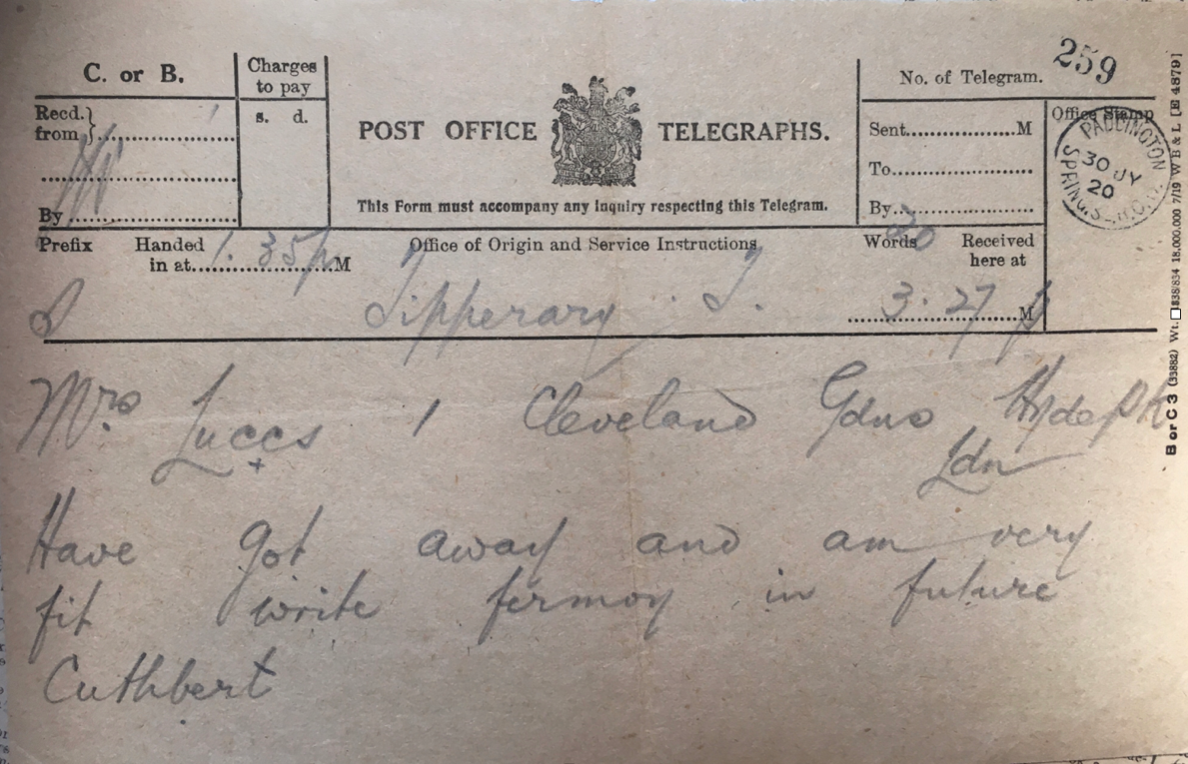 C. or B.
Charges
to pay
s. d.
Recd.
from
By
POST OFFICE TELEGRAPHS.
This Form must accompany any Inquiry respecting this Telegram.
No. of Telegram. 259
Sent M
To
By
Office Stamp
PADDINGTON
30 JY
20
Prefix Handed
in at 1.35p M
Office of Origin and Service Instructions
Words 20
Received
here at
S Tipperary T. 3.27 p M
Mrs Luccs 1 Cleveland Gdns Hyde Pk
Ldn
Have got away and am very
fit write fermoy in future
Cuthbert
B or C 3 (33882) Wt. 18,000,000 7/19 W B & L [E 4879]